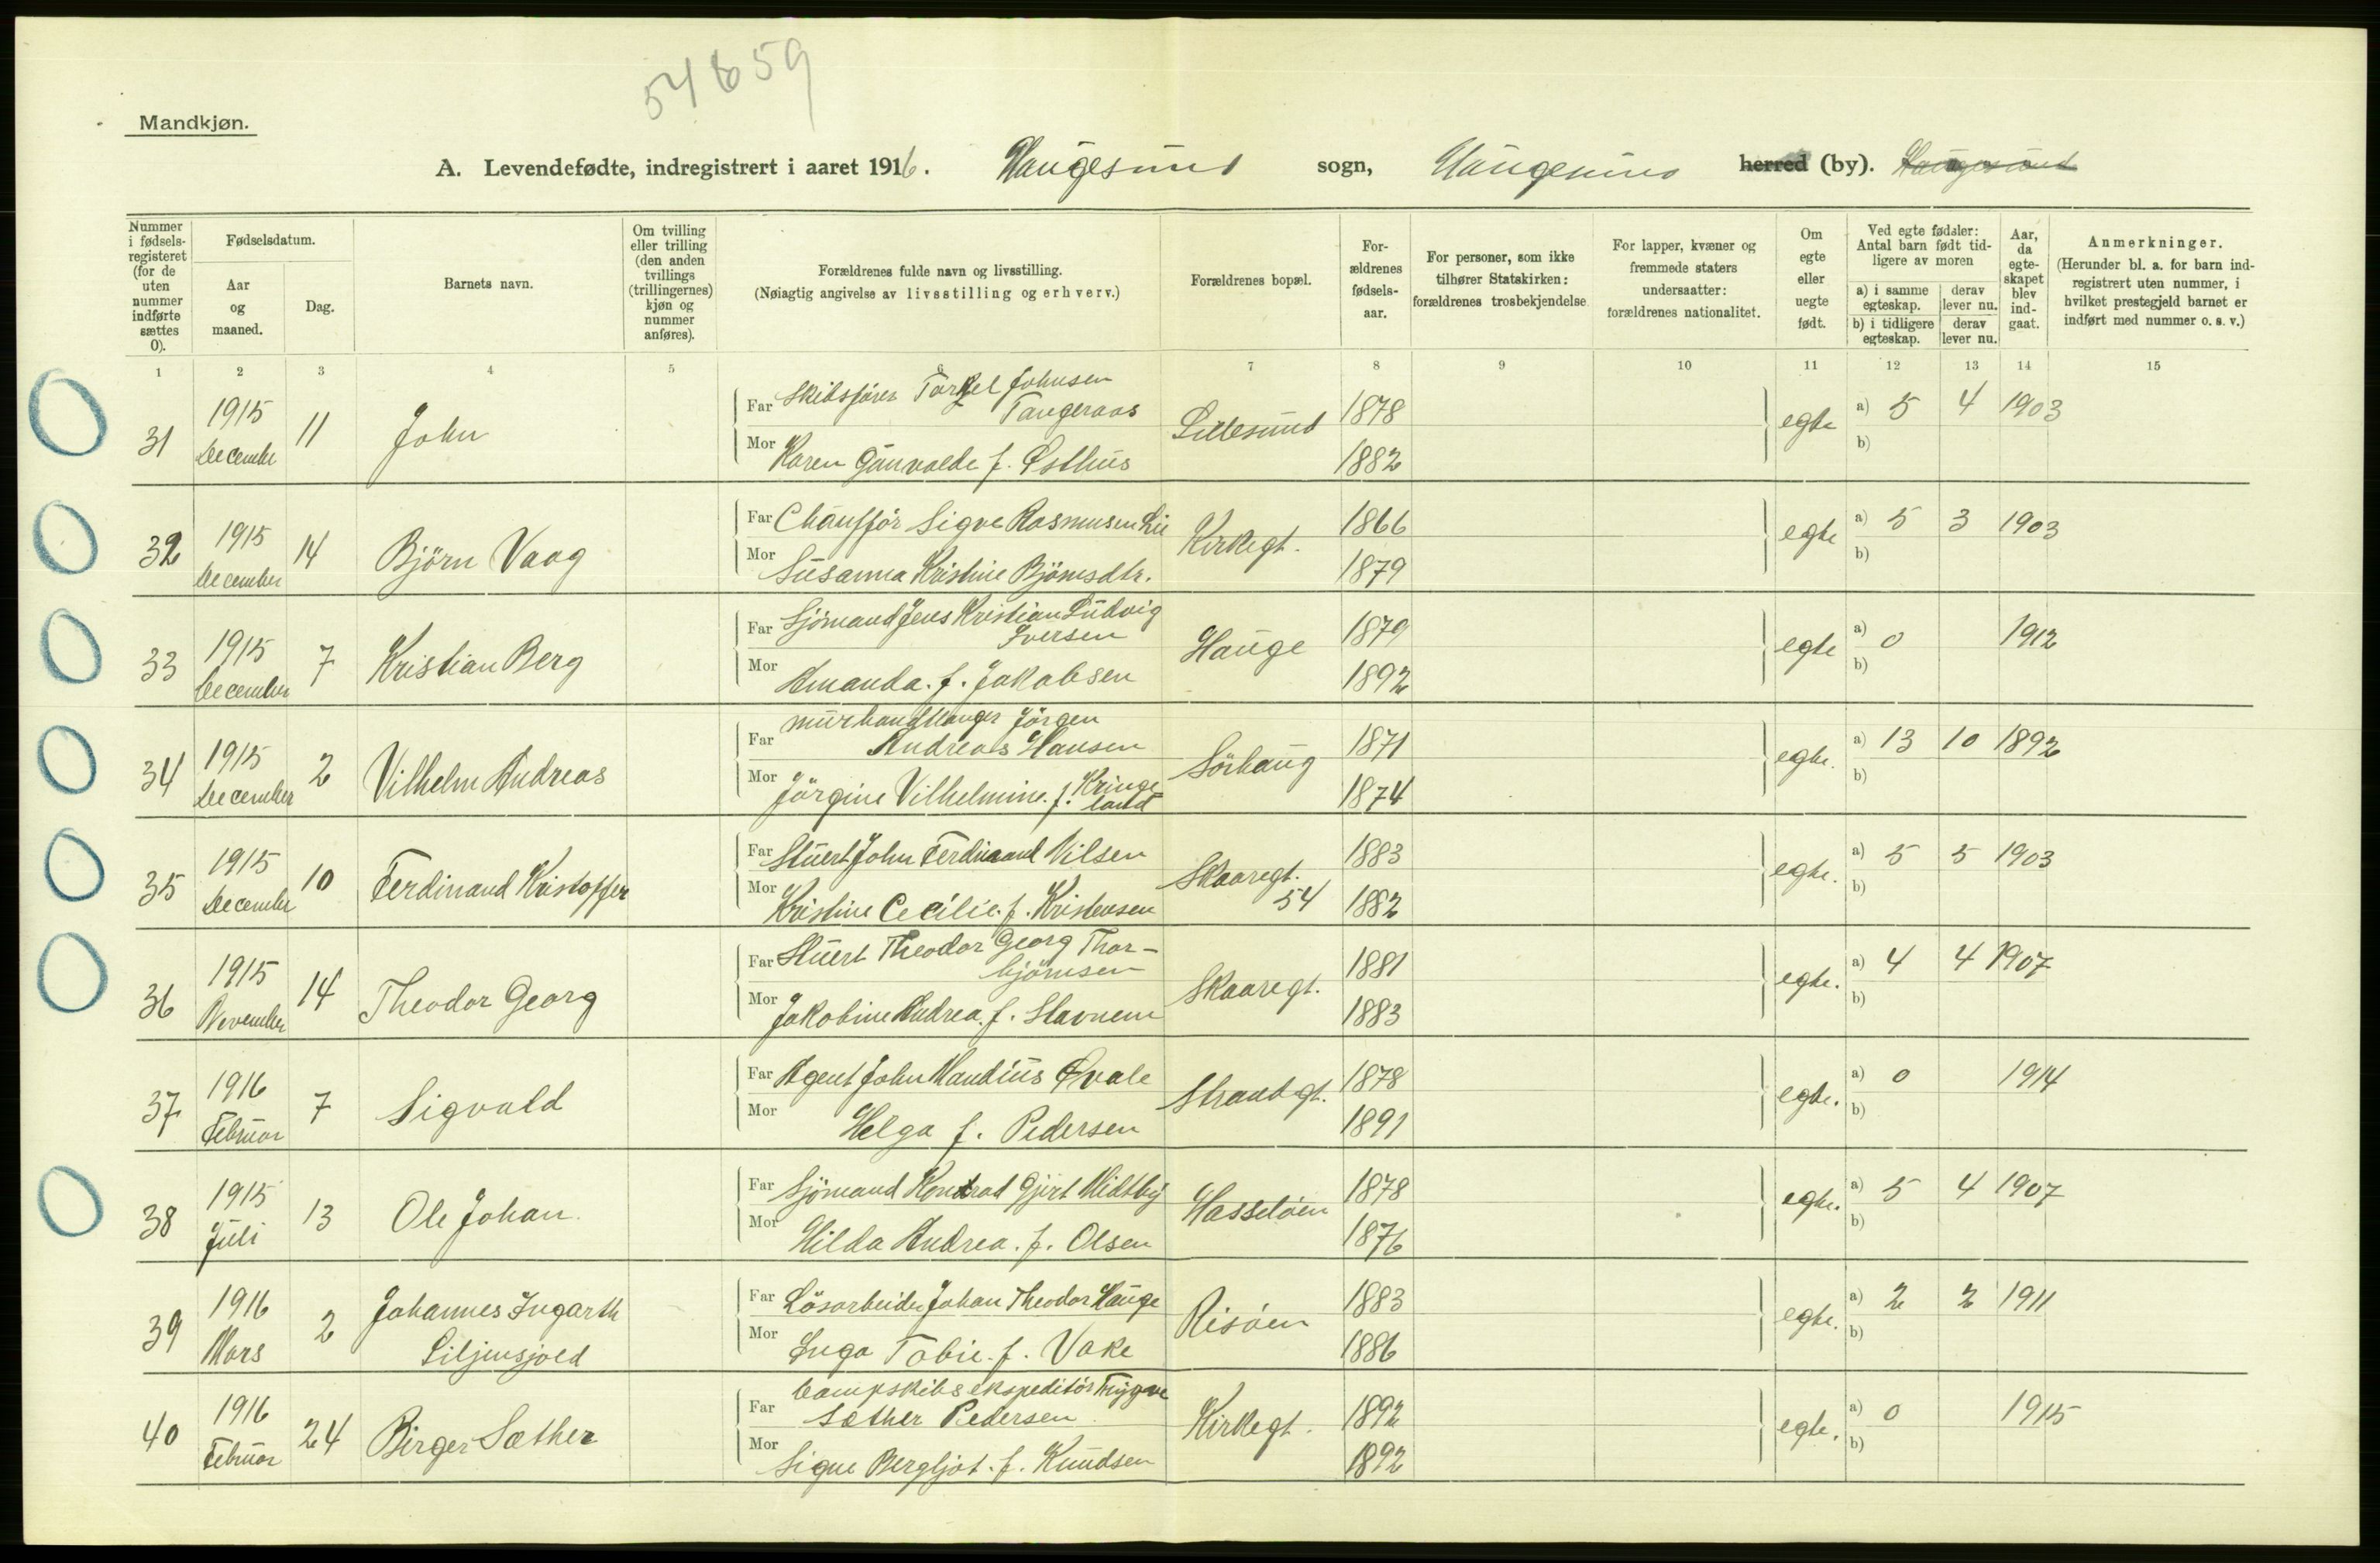 54659
Mandkjøn.
A. Levendefødte, indregistrert i aaret 1916. Haugesund sogn, Haugesund herred (by). Haugesund
Nummer i fødsels-registeret (for de uten nummer indførte sættes 0).
Fødselsdatum.
Aar og maaned.
Dag.
Barnets navn.
Om tvilling eller trilling (den anden tvillings (trillingernes) kjøn og nummer anføres).
Forældrenes fulde navn og livsstilling.
(Nøiagtig angivelse av livsstilling og erhverv.)
Forældrenes bopæl.
For-ældrenes fødsels-aar.
For personer, som ikke tilhører Statskirken: forældrenes trosbekjendelse
For lapper, kvæner og fremmede staters undersaatter: forældrenes nationalitet.
Om egte eller uegte født.
Ved egte fødsler: Antal barn født tid-ligere av moren
a) i samme egteskap. derav lever nu.
b) i tidligere egteskap. derav lever nu.
Aar, da egte-skapet blev ind-gaat.
Anmerkninger.
(Herunder bl. a. for barn ind-registrert uten nummer, i hvilket prestegjeld barnet er indført med nummer o. s. v.)
1 2 3 4 5 6 7 8 9 10 11 12 13 14 15
31 1915 December 11 John
Far Skibsfører Torkel Johnsen
Tangeraas 1878
Mor Karen Gunvalde f. Østhus 1882
Lillesund egte a) 5 4 1903
b)
32 1915 December 14 Björn Vaag
Far Chaufför Sigve Rasmusen Lie 1866
Mor Susanna Kristine Björnsdtr. 1879
Kirkegt. egte a) 5 3 1903
b)
33 1915 December 7 Kristian Berg
Far Sjömand Jens Kristian Ludvig
Iversen 1879
Mor Amanda. f. Jakobsen 1892
Hauge egte a) 0 1912
b)
34 1915 December 2 Vilhelm Andreas
Far murhandlanger Jörgen
Andreas Hansen 1871
Mor Jörgine Vilhelmine. f. Kringeland 1874
Sörhaug egte. a) 13 10 1892
b)
35 1915 December 10 Ferdinand Kristoffer
Far Stuert John Ferdinand Nilsen 1883
Mor Kristine Cecilie. f. Kristensen 1882
Skaaregt. 54 egte. a) 5 5 1903
b)
36 1915 November 14 Theodor Georg
Far Stuert Theodor Georg Thor-
björnsen 1881
Mor Jakobine Andrea. f. Stavnem 1883
Skaaregt. egte. a) 4 4 1907
b)
37 1916 Februar 7 Sigvald
Far Agent John Mandius Kvale 1878
Mor Helga f. Pedersen 1891
Strandgt. egte. a) 0 1914
b)
38 1915 Juli 13 Ole Johan.
Far Sjömand Konrad Gjert Midtby 1878
Mor Hilda Andrea. f. Olsen 1876
Hasseløen egte. a) 5 4 1907
b)
39 1916 Mars 2 Johannes Ingarth
Liljensjold
Far Lösarbeider Johan Theodor Hauge 1883
Mor Inga Tobie. f. Vake 1886
Risøen egte. a) 2 2 1911
b)
40 1916 Februar 24 Birger Sæther
Far Dampskibsekspeditör Trygve
Sæther Pedersen. 1892
Mor Signe Bergljot. f. Knudsen 1892
Kirkegt. egte. a) 0 1915
b)